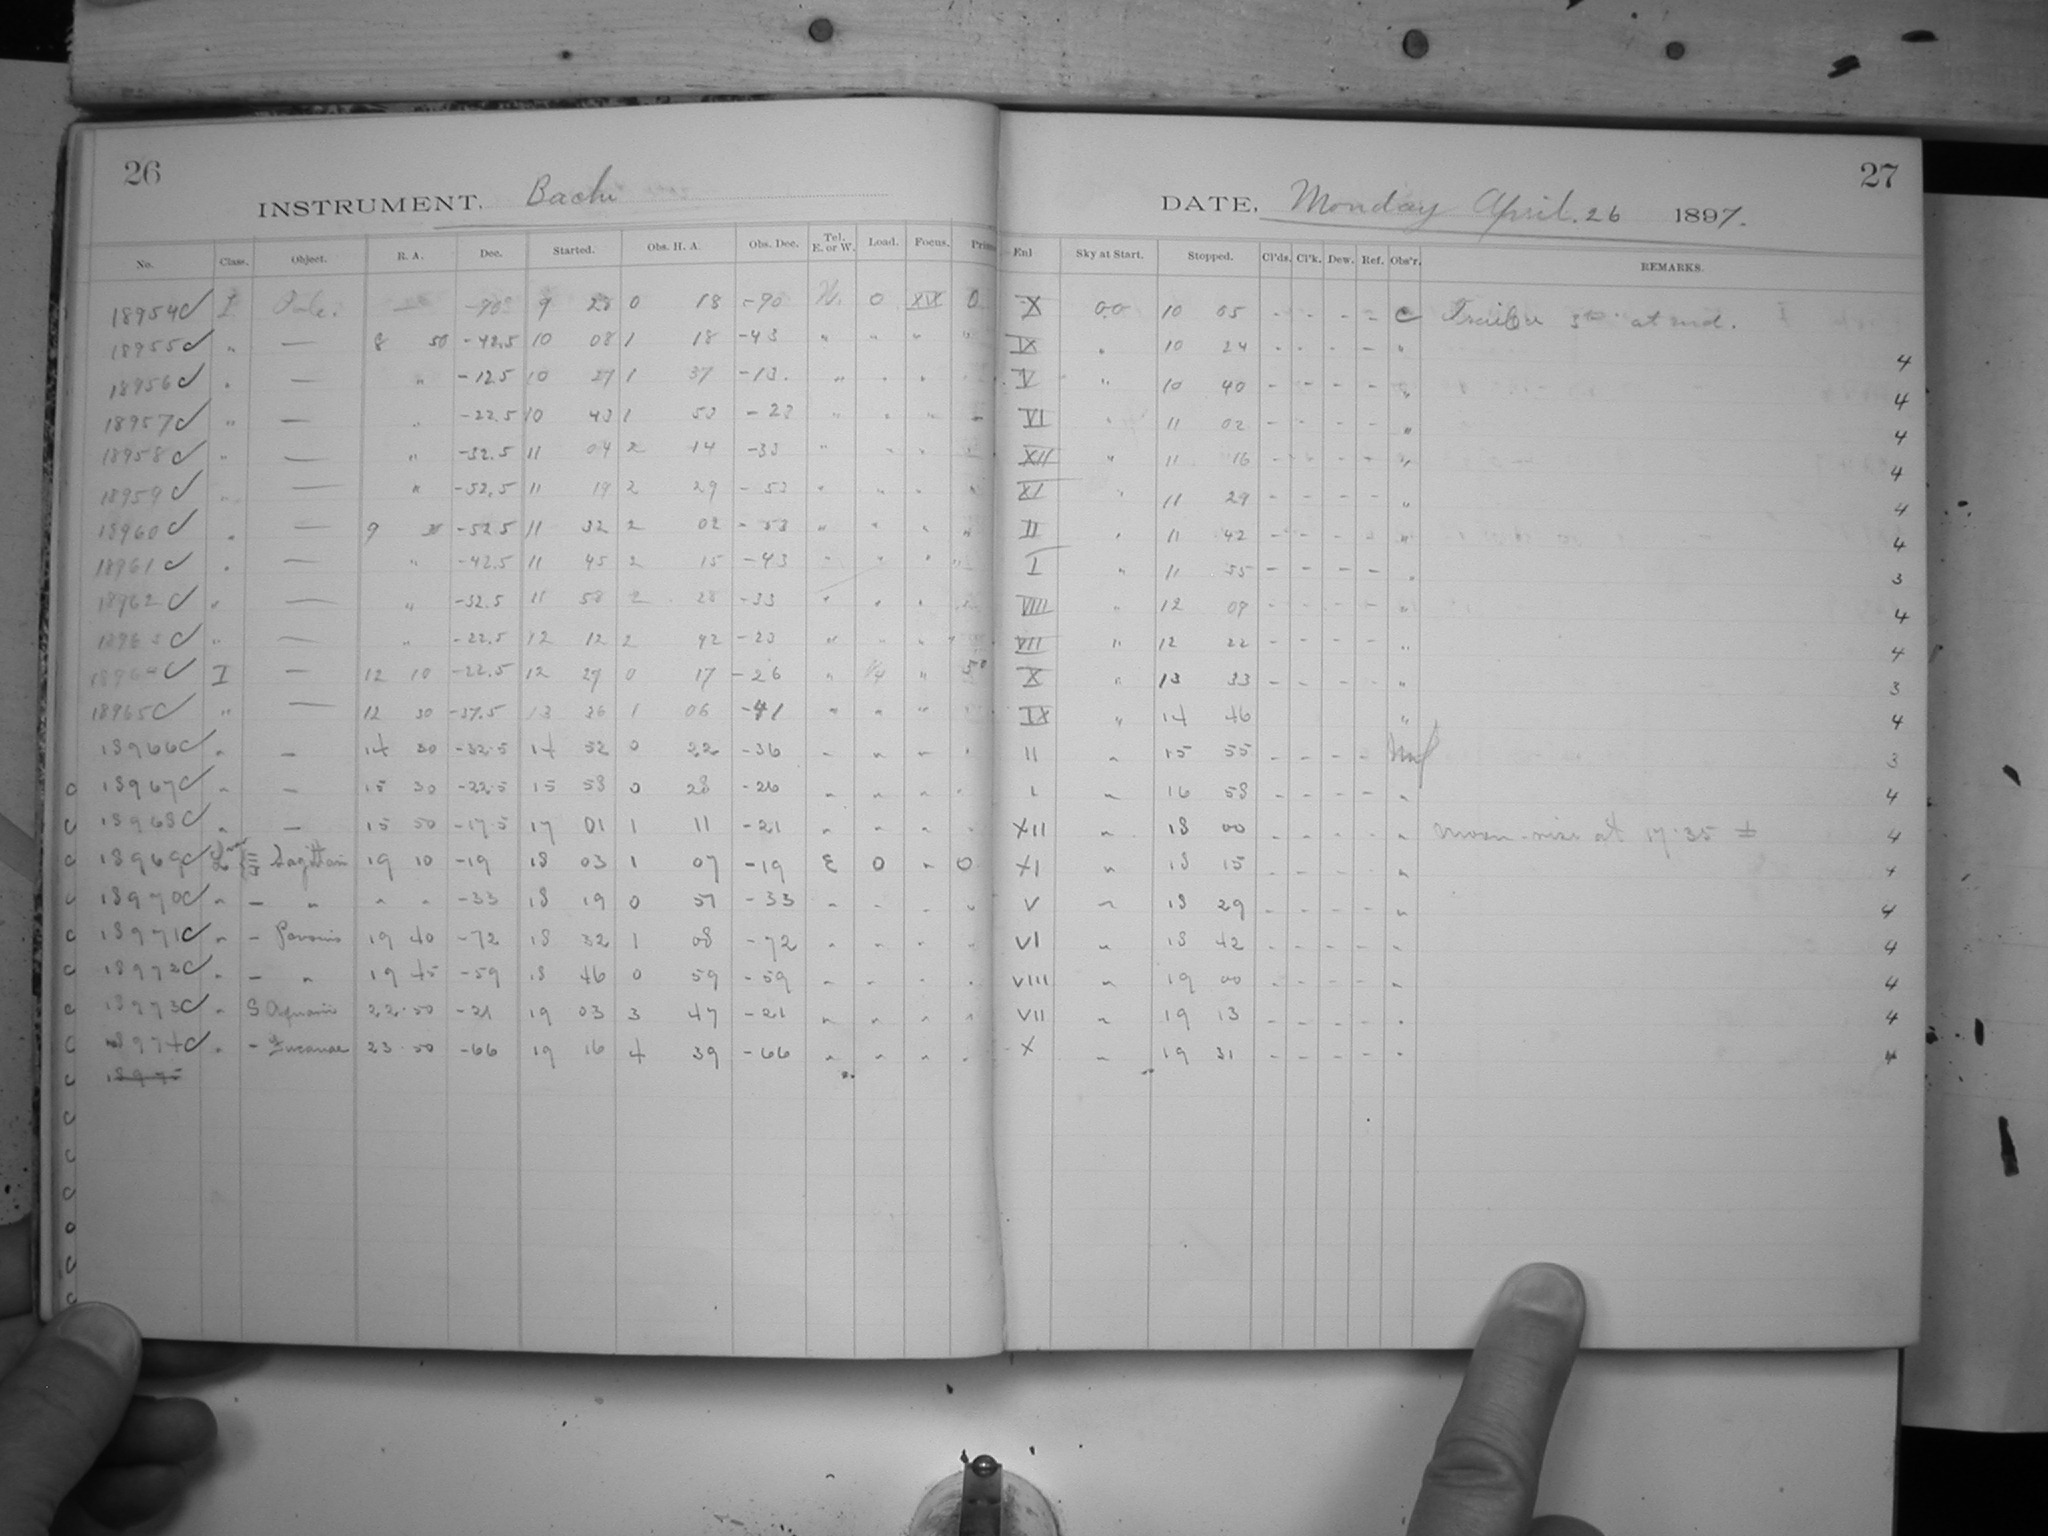 26
27
INSTRUMENT, Bache
DATE, Monday April. 26 1897.
No. Class. Object. R. A. Dec. Started. Obs. H. A. Obs. Dec. Tel. E. or W. Load. Focus. Enl Sky at Start. Stopped. Cl'ds. Cl'k. Dew. Ref. Obs'r. REMARKS.
18954 I Pole. — -90° 9 28 0 18 -90 W. 0 XIX 0 X 00 10 05 - - - - C at end.
18955 " — 8 50 -42.5 10 08 1 18 -43 " " " " IX " 10 24 - - - - " 4
18956 " — " -12.5 10 27 1 37 -13. " " " " V " 10 40 - - - - " 4
18957 " — " -22.5 10 43 1 53 -23 " " " " VI " 11 02 - - - - " 4
18958 " — " -32.5 11 04 2 14 -33 " " " " XII " 11 16 - - - - " 4
18959 " — " -52.5 11 19 2 29 -53 " " " " XI " 11 29 - - - - " 4
18960 " — 9 30 -52.5 11 32 2 02 -53 " " " " II " 11 42 - - - - " 4
18961 " — " -42.5 11 45 2 15 -43 " " " " I " 11 55 - - - - " 3
18962 " — " -32.5 11 58 2 28 -33 " " " " VIII " 12 09 - - - - " 4
18963 " — " -22.5 12 12 2 42 -23 " " " " VII " 12 22 - - - - " 4
18964 I — 12 10 -22.5 12 27 0 17 -26 " 1/4 " 5° X " 13 33 - - - - " 3
18965 " — 12 30 -37.5 13 36 1 06 -41 " " " " IX " 14 46 " 4
18966 " — 14 30 -32.5 14 52 0 22 -36 " " " " II " 15 55 - - - - 3
18967 " — 15 30 -22.5 15 58 0 28 -26 " " " " I " 16 58 - - - - " 4
18968 " — 15 50 -17.5 17 01 1 11 -21 " " " " XII " 18 00 - - - - " moon-rise at 17.35 ± 4
18969 Sagittarii 19 10 -19 18 03 1 07 -19 E 0 " 0 XI " 18 15 " 4
18970 " — " " " -33 18 19 0 57 -33 " " " " V " 18 29 - - - - " 4
18971 " — Pavonis 19 40 -72 18 32 1 08 -72 " " " " VI " 18 42 - - - - " 4
18972 " — " 19 45 -59 18 46 0 59 -59 " " " " VIII " 19 00 - - - - " 4
18973 " S Aquarii 22.50 -21 19 03 3 47 -21 " " " " VII " 19 13 - - - - " 4
18974 " — Tucanae 23.50 -66 19 16 4 39 -66 " " " " X " 19 31 - - - - " 4
18975